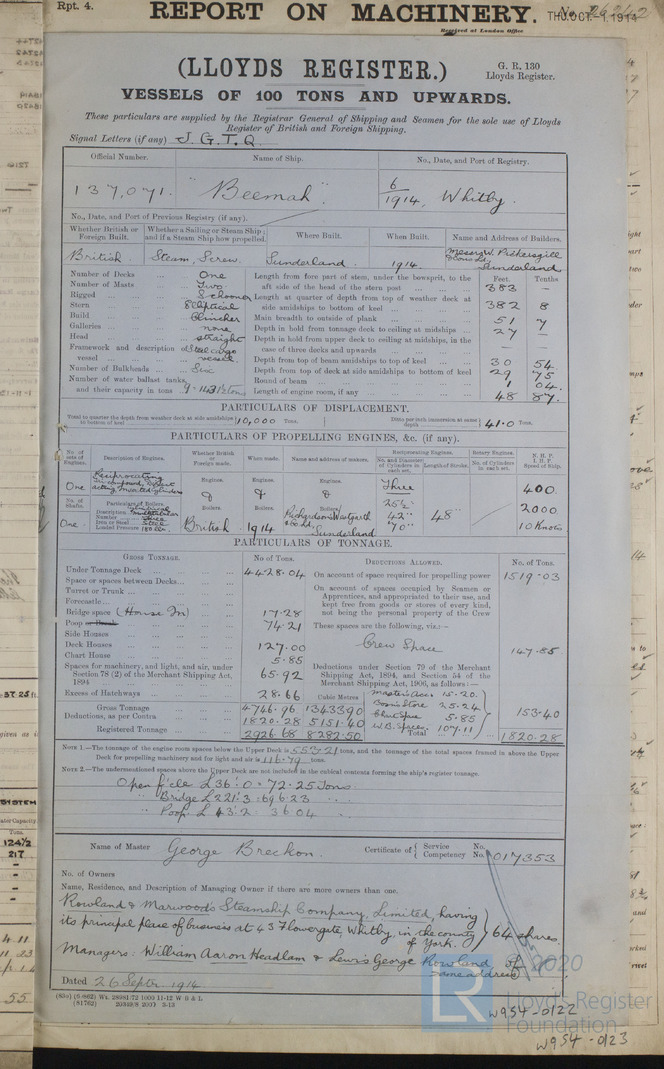 Rpt. 4.
REPORT ON MACHINERY.
No. 26242
THU. OCT. -1. 1914
Received at London Office
(LLOYDS REGISTER.)
G. R. 130
Lloyds Register.
VESSELS OF 100 TONS AND UPWARDS.
These particulars are supplied by the Registrar General of Shipping and Seamen for the sole use of Lloyds
Register of British and Foreign Shipping.
Signal Letters (if any) J. G. T. Q.
Official Number. Name of Ship. No., Date, and Port of Registry.
137,071. "Beemah". 6/1914, Whitby.
No., Date, and Port of Previous Registry (if any).
Whether British or Foreign Built. Whether a Sailing or Steam Ship; and if a Steam Ship how propelled. Where Built. When Built. Name and Address of Builders.
British. Steam, Screw. Sunderland. 1914. Messrs W. Pickersgill & Sons Ld. Sunderland
Number of Decks ... One
Number of Masts ... Two
Rigged ... Schooner
Stern ... Elliptical
Build ... Clincher
Galleries ... none
Head ... straight
Framework and description of vessel Steel cargo vessel
Number of Bulkheads ... Six
Number of water ballast tanks, and their capacity in tons 9 - 1431½ tons
Feet. Tenths
Length from fore part of stem, under the bowsprit, to the aft side of the head of the stern post 383 —
Length at quarter of depth from top of weather deck at side amidships to bottom of keel ... 382 8
Main breadth to outside of plank ... 51 7
Depth in hold from tonnage deck to ceiling at midships ... 27 —
Depth in hold from upper deck to ceiling at midships, in the case of three decks and upwards — —
Depth from top of beam amidships to top of keel ... 30 54
Depth from top of deck at side amidships to bottom of keel 29 75
Round of beam 1 04.
Length of engine room, if any ... 48 87.
PARTICULARS OF DISPLACEMENT.
Total to quarter the depth from weather deck at side amidships to bottom of keel 10,000 Tons.
Ditto per inch immersion at same depth 41.0 Tons.
PARTICULARS OF PROPELLING ENGINES, &c. (if any).
No. of sets of Engines. Description of Engines. Whether British or Foreign made. When made. Name and address of makers. Reciprocating Engines. Rotary Engines. N.H.P. I.H.P. Speed of Ship.
No. and Diameter of Cylinders in each set. Length of Stroke. No. of Cylinders in each set.
One Reciprocating Tri compound, Direct acting, Inverted cylinders Engines. & Engines. & Engines. & Three 400.
No. of Shafts. Particulars of Boilers. Boilers. Boilers. Boilers.
Description Multitubular
Number Three
Iron or Steel Steel
Loaded Pressure 180 lbs.
One. British 1914 Richardsons Westgarth & Co Ld, Sunderland 25½" 42" 70" 48" 2000 10 Knots
PARTICULARS OF TONNAGE.
GROSS TONNAGE. No of Tons. DEDUCTIONS ALLOWED. No. of Tons.
Under Tonnage Deck ... 4428.04
Space or spaces between Decks...
Turret or Trunk ...
Forecastle...
Bridge space (House In) 17.28
Poop ... 74.21
Side Houses ...
Deck Houses ... 127.00
Chart House ... 5.85
Spaces for machinery, and light, and air, under Section 78 (2) of the Merchant Shipping Act, 1894 65.92
Excess of Hatchways ... 28.66
Cubic Metres
Gross Tonnage ... 4746.96 13433.90
Deductions, as per Contra ... 1820.28 5151.40
Registered Tonnage ... 2926.68 8282.50
On account of space required for propelling power 1519.03
On account of spaces occupied by Seamen or Apprentices, and appropriated to their use, and kept free from goods or stores of every kind, not being the personal property of the Crew
These spaces are the following, viz.:—
Crew Space 147.85
Deductions under Section 79 of the Merchant Shipping Act, 1894, and Section 54 of the Merchant Shipping Act, 1906, as follows:—
Master's Acc. 15.20.
Bosn's Store 25.24
Chart Space 5.85
W.B. Space. 107.11
153.40
Total 1820.28
NOTE 1.—The tonnage of the engine room spaces below the Upper Deck is 553.21 tons, and the tonnage of the total spaces framed in above the Upper
Deck for propelling machinery and for light and air is 116.79 tons.
NOTE 2.—The undermentioned spaces above the Upper Deck are not included in the cubical contents forming the ship's register tonnage.
Open f'cle L 36'.0 = 72.25 Tons.
" Bridge L 221'.3 = 696.23 "
" Poop. L 43'.2 36.04 "
Name of Master George Breckon. Certificate of Service No. Competency No. 017353
No. of Owners
Name, Residence, and Description of Managing Owner if there are more owners than one.
Rowland & Marwood's Steamship Company, Limited, having
its principal place of business at 43 Flowergate, Whitby, in the county of York. 64 shares
Managers: William Aaron Headlam & Lewis George Rowland of same address
Dated 26 Septr. 1914
© 2020
Lloyd's Register
Foundation
LR
W954-0122
W954-0123